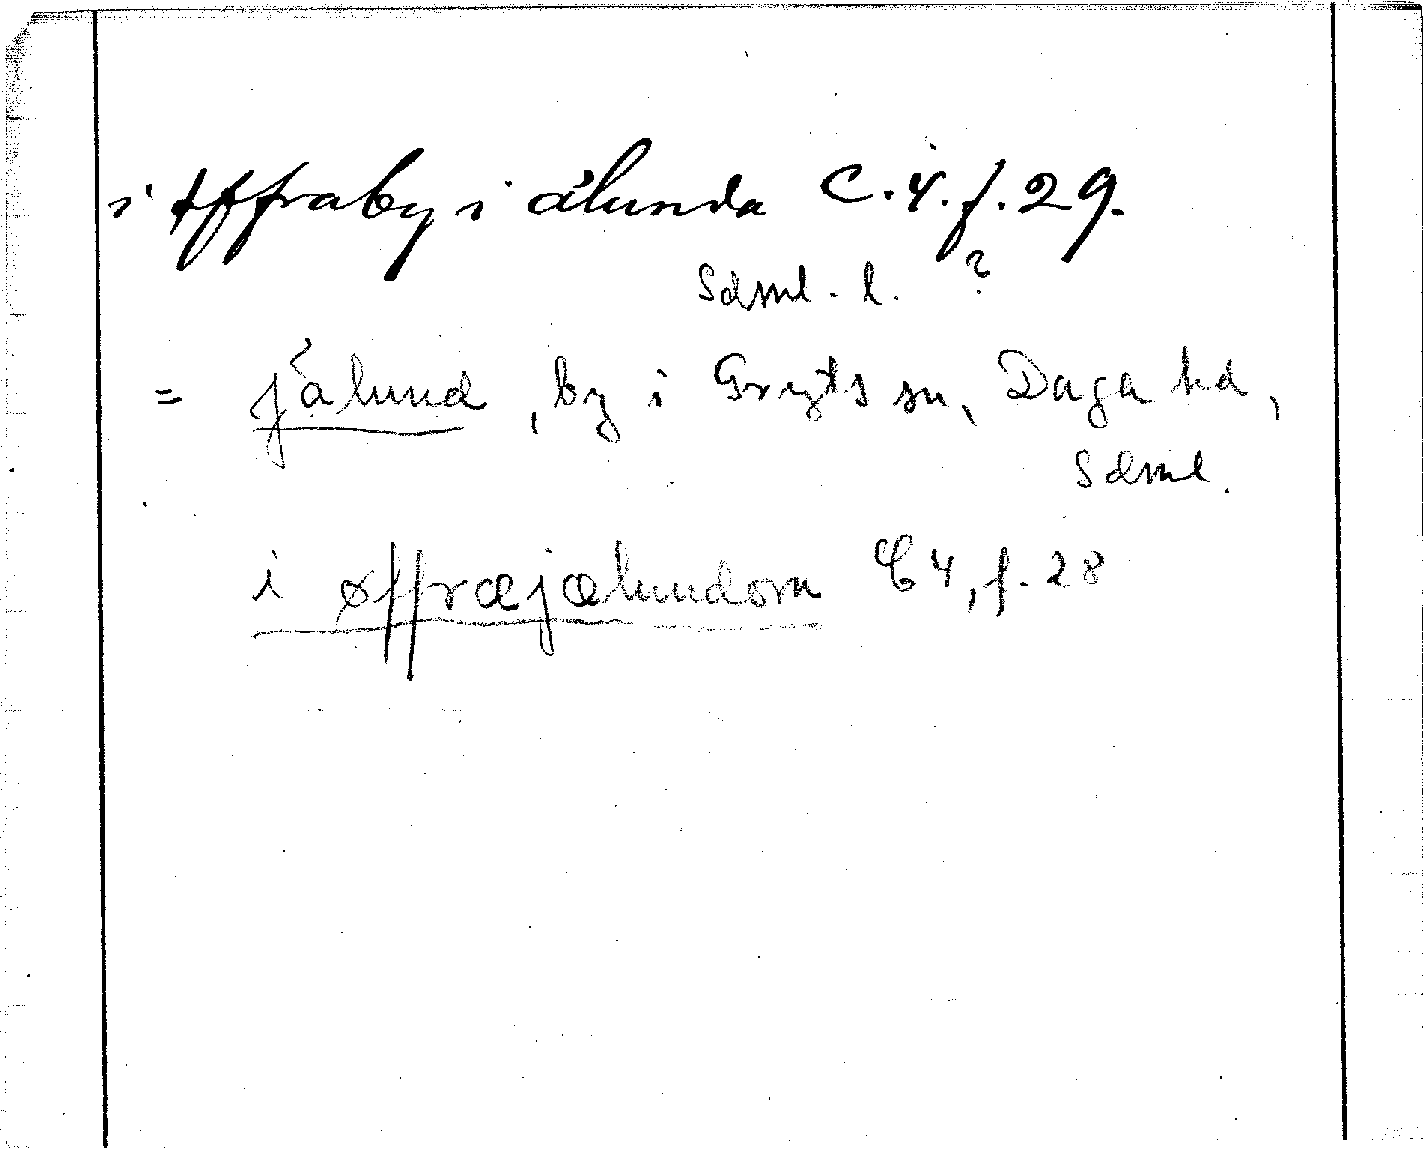 i øffraby i álunda C.4.f.29.
Sdml. l. ?
= Jälund, by i Gryts sn, Daga hd,
Sdml.
i øffræjælundom C4, f. 28